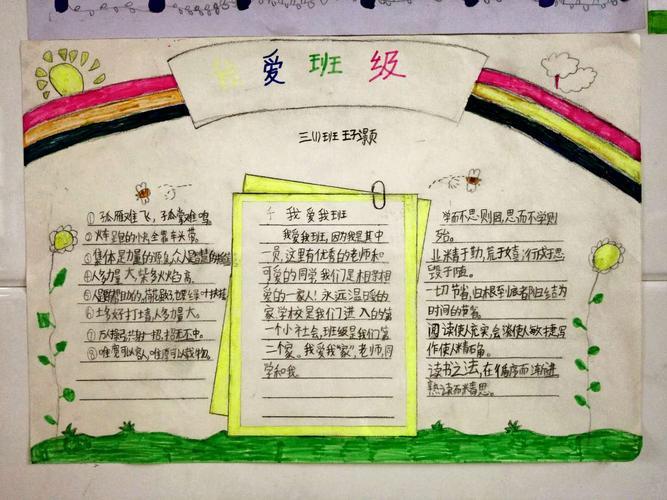 我爱班级
三(1)班 王子灏
①孤雁难飞，孤掌难鸣。
②火车跑的快全靠车头带。
③集体是力量的源泉，众人是智慧的摇篮
④人多力量大，柴多火焰高。
⑥土多好打墙，人多力量大。
⑦万人操弓，共射一招，招无不中。
⑧唯宽可以容人，唯厚可以载物。
我爱我班
我爱我班，因为我是其中
一员，这里有优秀的老师和
可爱的同学，我们是相亲相
爱的一家人！永远温暖的
家，学校是我们进入的第
一个小社会，班级是我们第
二个家。我爱我"家"，老师，同
学和我。
学而不思则罔，思而不学则
殆。
业精于勤，荒于嬉；行成于思
毁于随。
一切节省，归根到底都归结为
时间的节省。
阅读使人充实，会谈使人敏捷，写
作使人精确。
读书之法，在循序而渐进
熟读而精思。